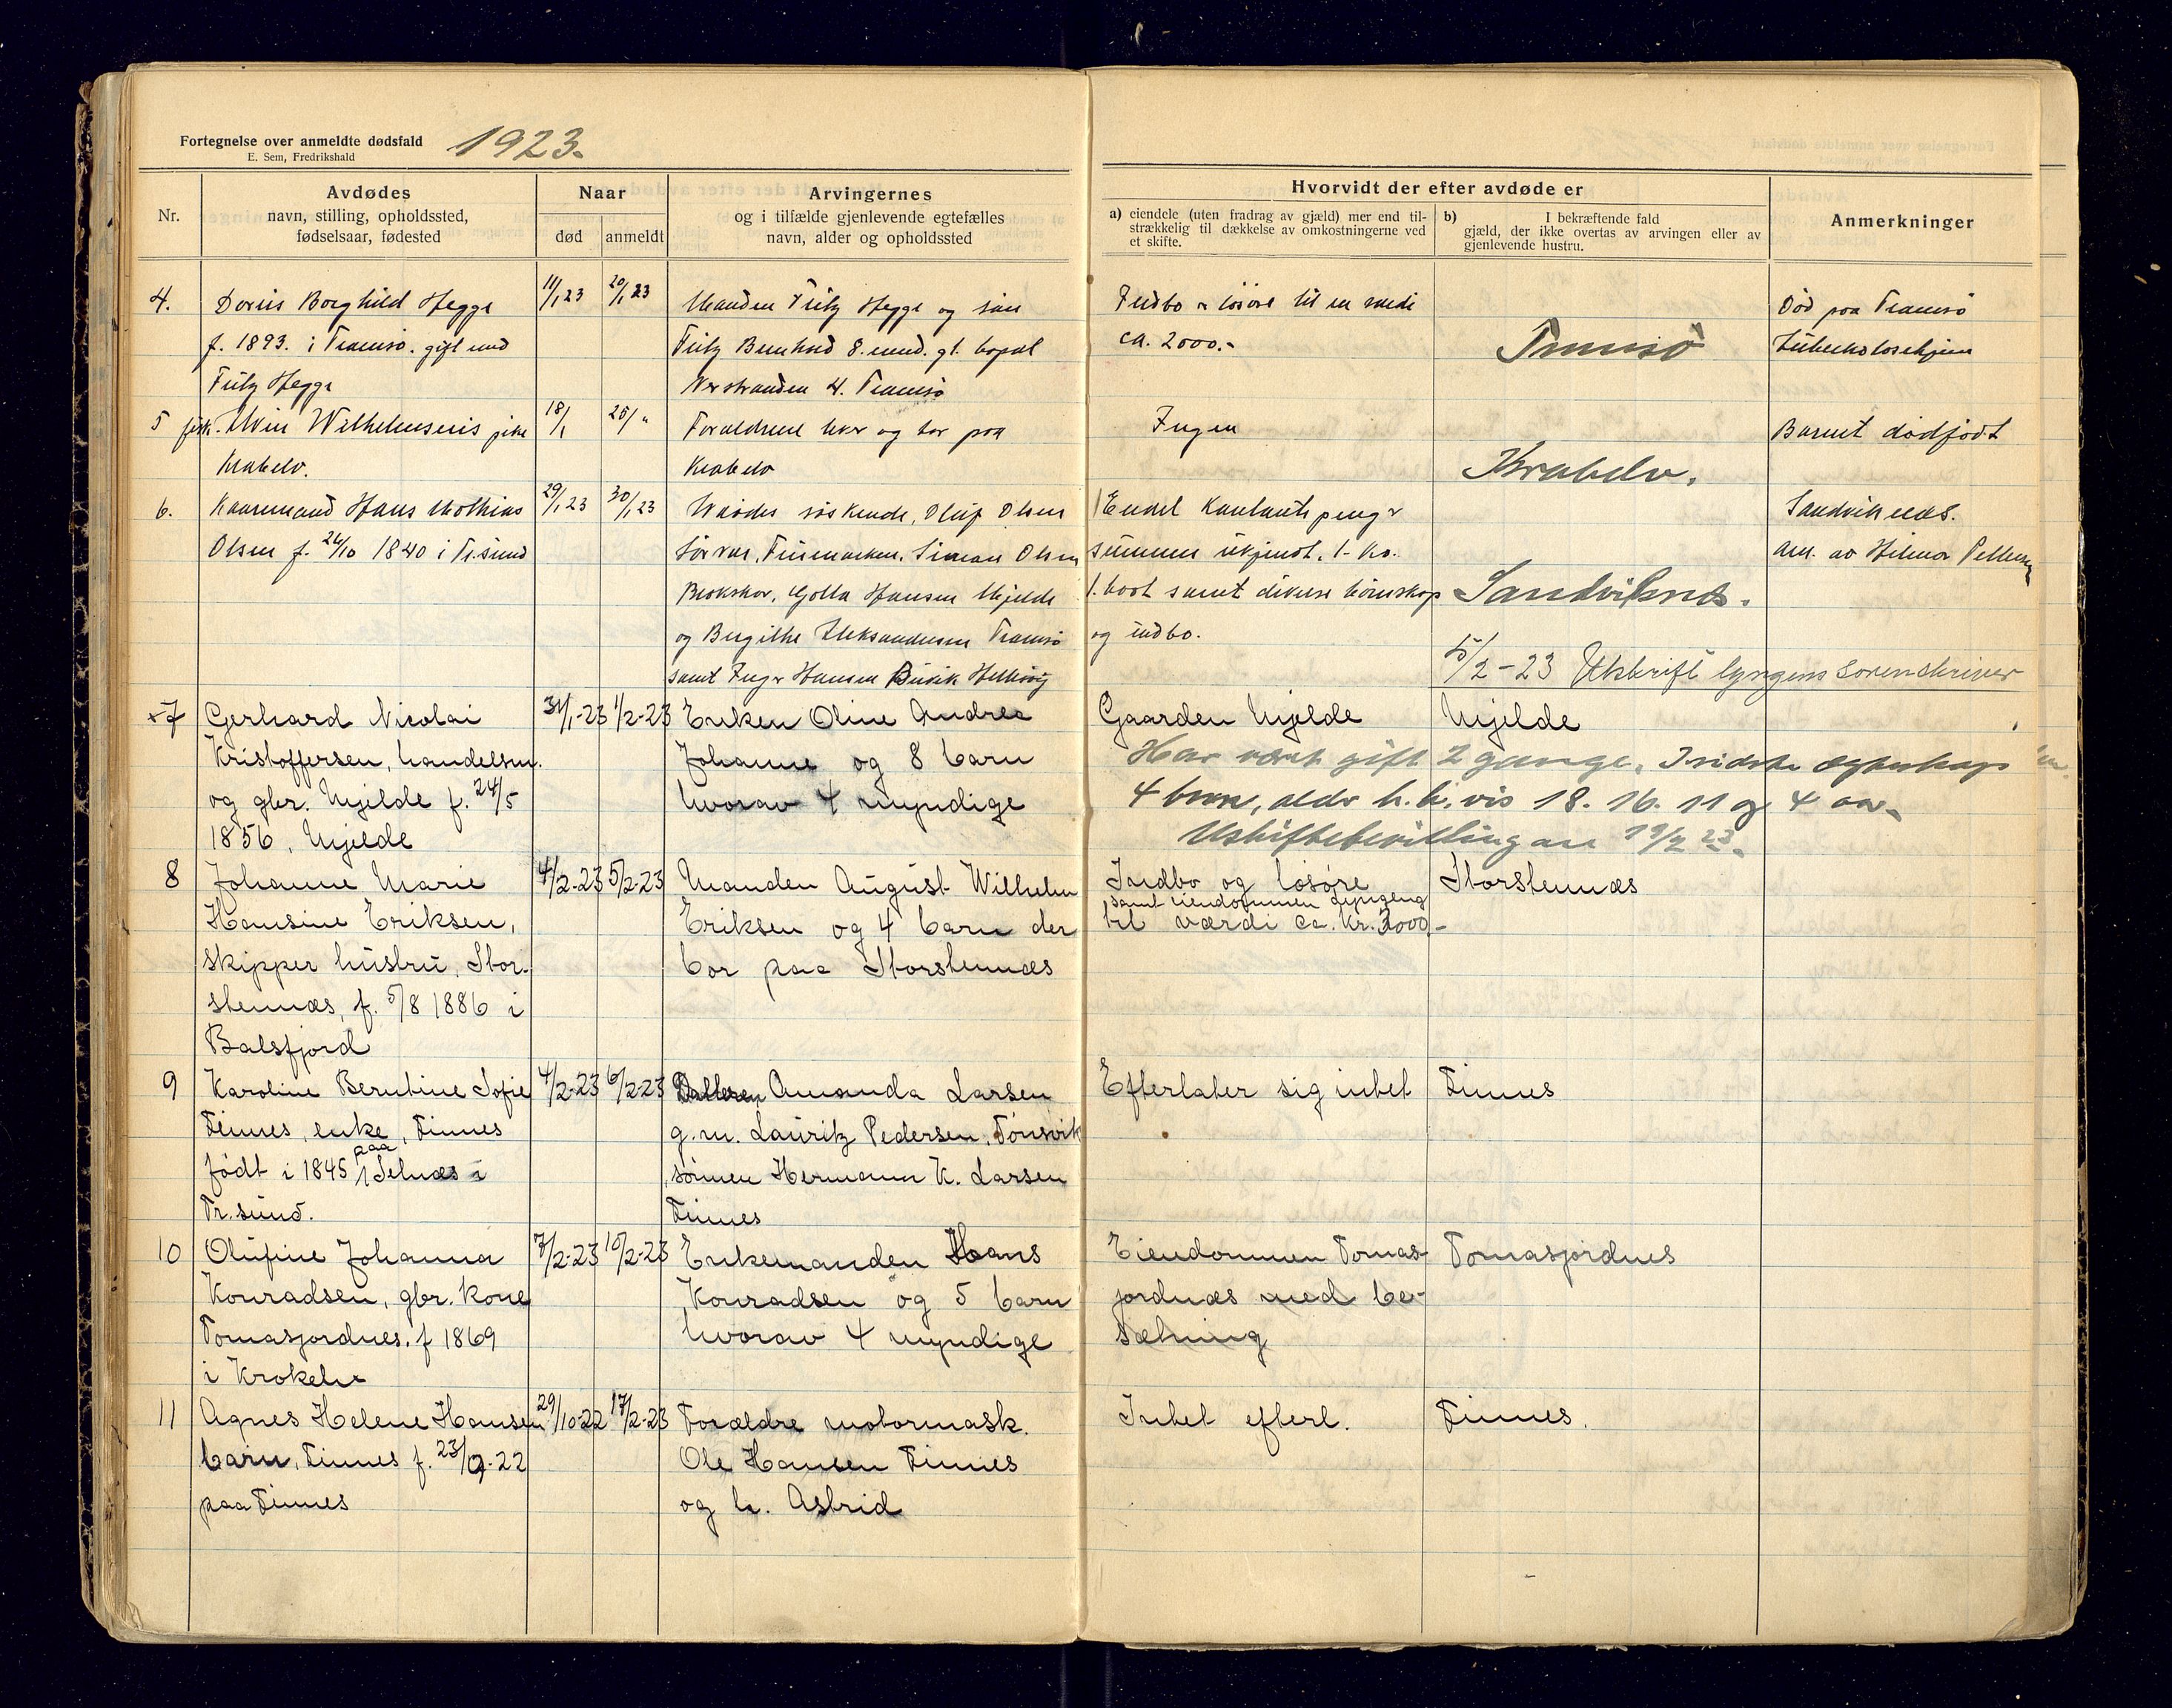 Fortegnelse over anmeldte dødsfald 1923.
E. Sem, Fredrikshald
Nr.
Avdødes
navn, stilling, opholdssted,
fødselsaar, fødested
Naar
død
anmeldt
Arvingernes
og i tilfælde gjenlevende egtefælles
navn, alder og opholdssted
Hvorvidt der efter avdøde er
a) eiendele (uten fradrag av gjæld) mer end til-
strækkelig til dækkelse av omkostningerne ved
et skifte.
b) I bekræftende fald
gjæld, der ikke overtas av arvingen eller av
gjenlevende hustru.
Anmerkninger
4.
Borghild Hegge
f. 1893. i Tromsø. gift med
Fritz Hegge
11/1 23
29/1 23
Manden Fritz Hegge og søn
Fritz Bernhard 8. mnd. gl. bopæl
4. Tromsø
Indbo & løsøre til en værdi
ca. 2000.-
Tromsø
Død paa Tromsø
5
Wilhelmsens pike
18/1
25/ "
Forældrene lever og bor paa
Ingen
Krabelv.
Barnet dødfødt
6.
Hans Mathias
Olsen f. 26/10 1840 i Tr.sund
29/1 23
30/1 23
søskende, Oluf Olsen
Sørvær, Finmarken, Simon Olsen
Hansen Mjelde
og Bergithe Aleksandersen Tromsø
samt Inger Hansen Buvik
Endel Kontante penge
summen ukjendt, 1. ko.
1. baat samt diverse
og indbo.
Sandviknes.
Sandviknes.
an. av Hilmar
5/2-23 Utskrift lyngens sorenskriver
x7
Gerhard Nicolai
Kristoffersen, handelsm.
og gbr. Mjelde f. 24/5
1856, Mjelde
31/1-23
1/2-23
Enken Oline Andrea
Johanne og 8 barn
hvorav 4 myndige
Gaarden Mjelde
Mjelde
Har været gift 2 gange. I sidste ægteskap
4 barn, alder h.h.vis 18. 16. 11 og 4 aar.
Uskiftebevilling an 19/2 23.
8
Johanne Marie
Hansine Eriksen,
skipper hustru, Stor-
stennæs, f. 5/8 1886 i
Balsfjord
4/2-23
5/2-23
Manden August Wilhelm
Eriksen og 4 barn der
bor paa Storstennæs
Indbo og løsøre
samt eiendommen
til værdi ca. kr. 3000.-
Storstennæs
9
Karoline Berntine Sofie
Finnes, enke, Finnes
født i 1845 paa Selnæs i
Tr.sund.
4/2-23
6/2-23
Datteren Amanda Larsen
g.m. Lauritz Pedersen, Tønsvik
sønnen Hermann K. Larsen
Finnes
Efterlater sig intet
Finnes
10
Olufine Johanna
Konradsen, gbr. kone
Tomasjordnes. f 1869
i Krokelv
7/2-23
10/2-23
Enkemanden Hans
Konradsen og 5 barn
hvorav 4 myndige
Eiendommen Tomas-
jordnæs med be-
sætning
Tomasjordnes
11
Agnes Helene Hansen
barn, Finnes f. 23/9-22
paa Finnes
29/10-22
17/2-23
Forældre motormask.
Ole Hansen Finnes
og h. Astrid
Intet efterl.
Finnes.